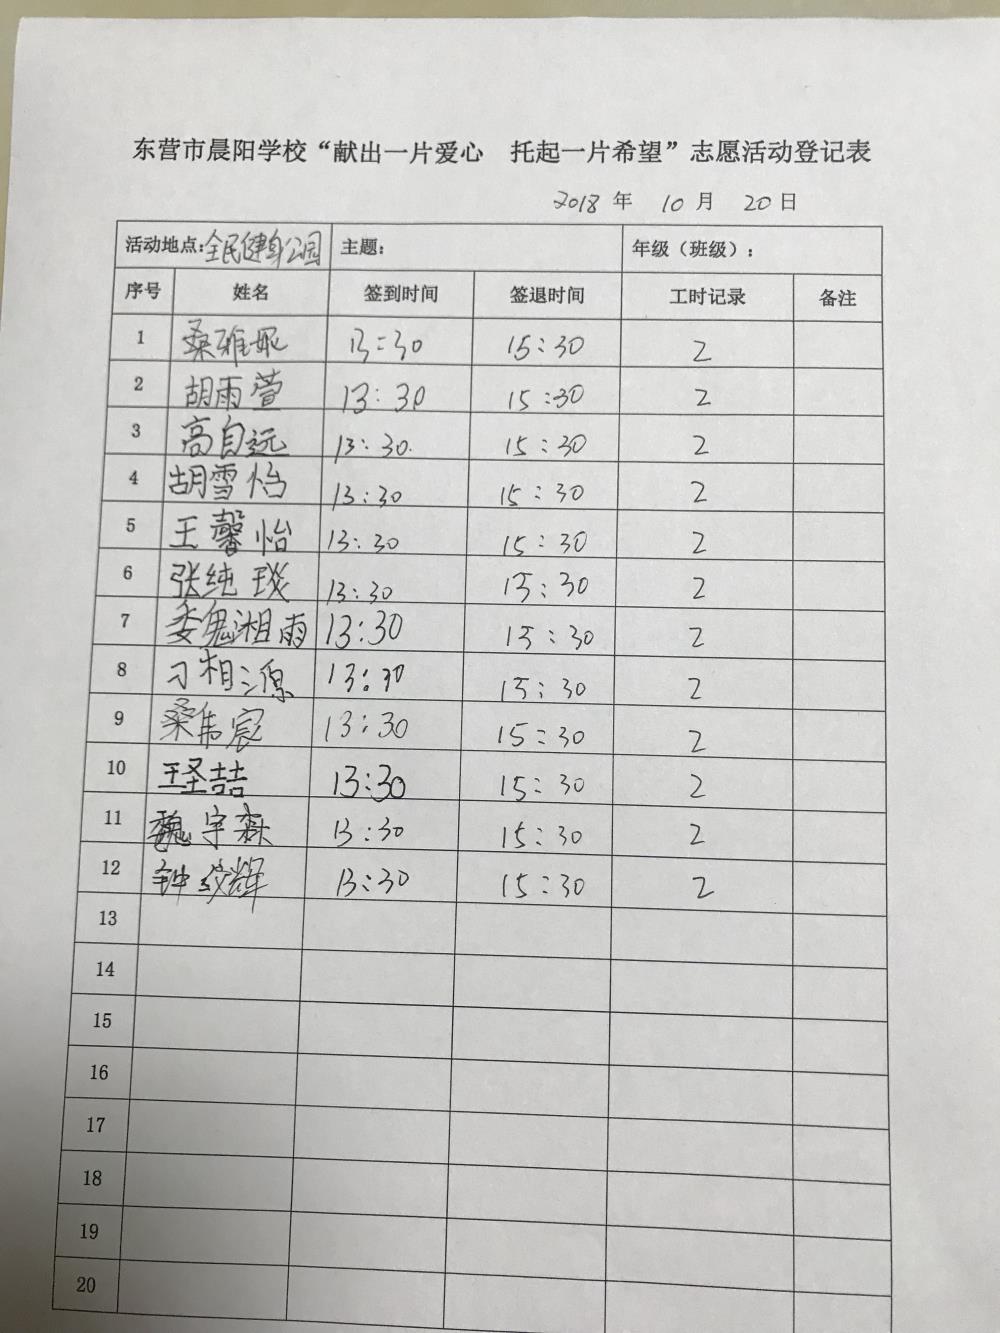 东营市晨阳学校“献出一片爱心 托起一片希望”志愿活动登记表
2018 年 10 月 20 日
活动地点:全民健身公园 主题: 年级（班级）:
序号 姓名 签到时间 签退时间 工时记录 备注
1 桑雅妮 13:30 15:30 2
2 胡雨萱 13:30 15:30 2
3 高自远 13:30 15:30 2
4 胡雪怡 13:30 15:30 2
5 王馨怡 13:30 15:30 2
6 张纯琰 13:30 15:30 2
7 委鬼湘雨 13:30 15:30 2
8 刁相源 13:30 15:30 2
9 桑伟宸 13:30 15:30 2
10 王圣喆 13:30 15:30 2
11 魏宇森 13:30 15:30 2
12 钟纹辉 13:30 15:30 2
13
14
15
16
17
18
19
20